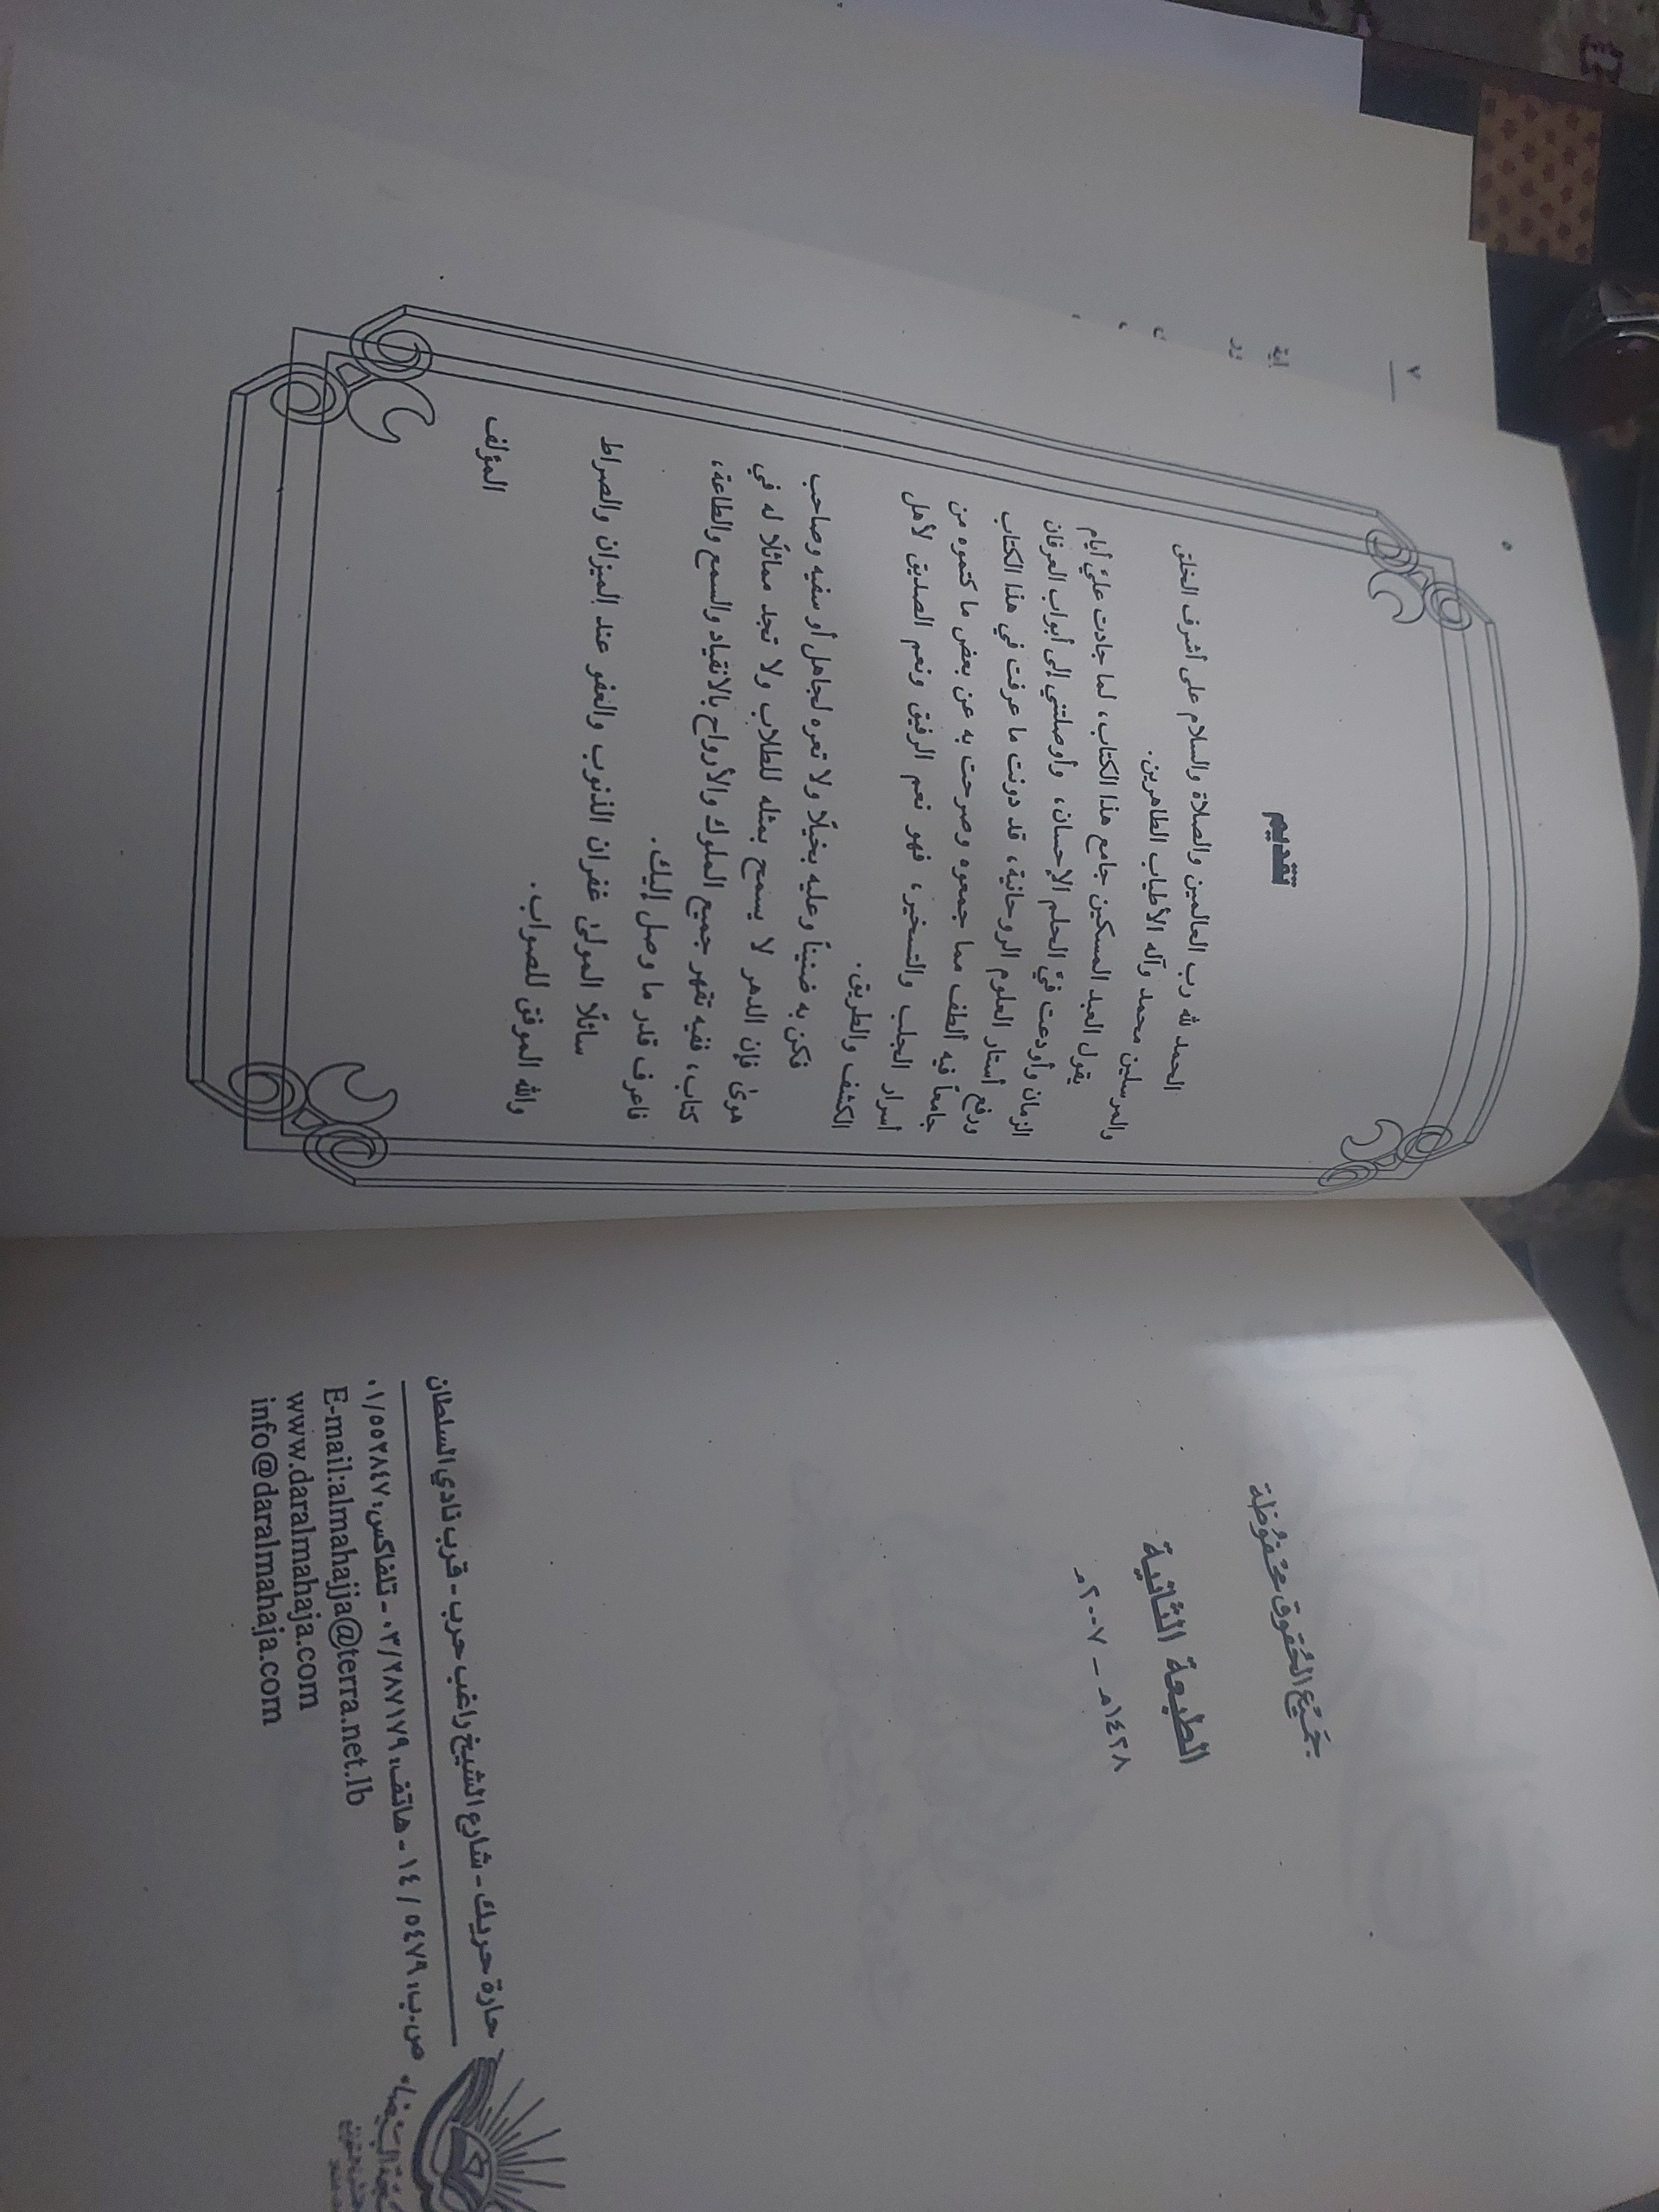 جميع الحقوق محفوظة
الطبعة الثانية
١٤٢٨هـ - ٢٠٠٧م
حارة حريك - شارع الشيخ راغب حرب - قرب نادي السلطان
ص.ب: ٥٤٧٩ / ١٤ - هاتف: ٠٣/٢٨٧١٧٩ - تلفاكس: ٠١/٥٥٢٨٤٧
E-mail:almahajja@terra.net.lb
www.daralmahaja.com
info@daralmahaja.com
٥
تقديم
الحمد لله رب العالمين والصلاة والسلام على أشرف الخلق
والمرسلين محمد وآله الأطياب الطاهرين.
يقول العبد المسكين جامع هذا الكتاب، لما جادت عليّ أيام
الزمان وأودعت فيّ الحلم الإحسان، وأوصلتني إلى أبواب العرفان
ورفع أستار العلوم الروحانية، قد دونت ما عرفت في هذا الكتاب
جامعاً فيه ألطف مما جمعوه وصرحت به عن بعض ما كتموه من
أسرار الجلب والتسخير، فهو نعم الرفيق ونعم الصديق لأهل
الكشف والطريق.
فكن به ضنيناً وعليه بخيلًا ولا تعره لجاهل أو سفيه وصاحب
هوىٰ فإن الدهر لا يسمح بمثله للطلاب ولا تجد مماثلًا له في
كتاب، ففيه تقهر جميع الملوك والأرواح بالانقياد والسمع والطاعة،
فاعرف قدر ما وصل إليك.
سائلًا المولىٰ غفران الذنوب والعفو عند الميزان والصراط
والله الموفق للصواب.
المؤلف
٧